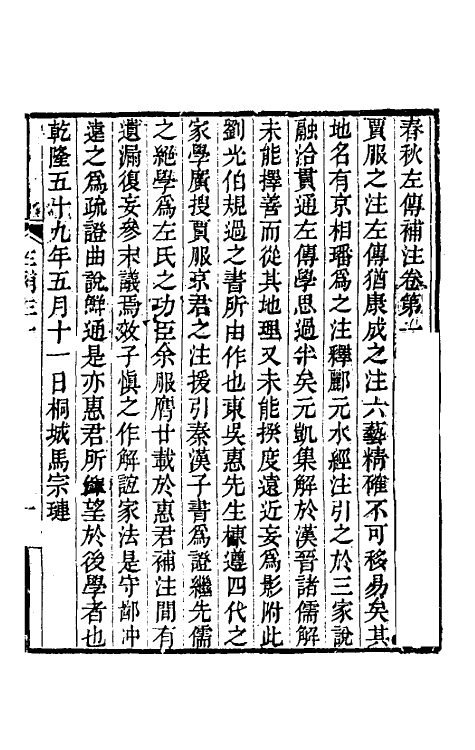 春秋左傳補注卷第一
賈服之注左傳猶康成之注六藝精確不可移易矣其
地名有京相璠爲之注釋酈元水經注引之於三家說
融洽貫通左傳學思過半矣元凱集解於漢晉諸儒解
未能擇善而從其地理又未能揆度遠近妄爲影附此
劉光伯規過之書所由作也東吳惠先生棟遵四代之
家學廣搜賈服京君之注援引秦漢子書爲證繼先儒
之絕學爲左氏之功臣余服膺廿載於惠君補注間有
遺漏復妄參末議焉效子愼之作解誼家法是守鄙沖
遠之爲疏證曲說鮮通是亦惠君所望於後學者也
乾隆五十九年五月十一日桐城馬宗璉
一